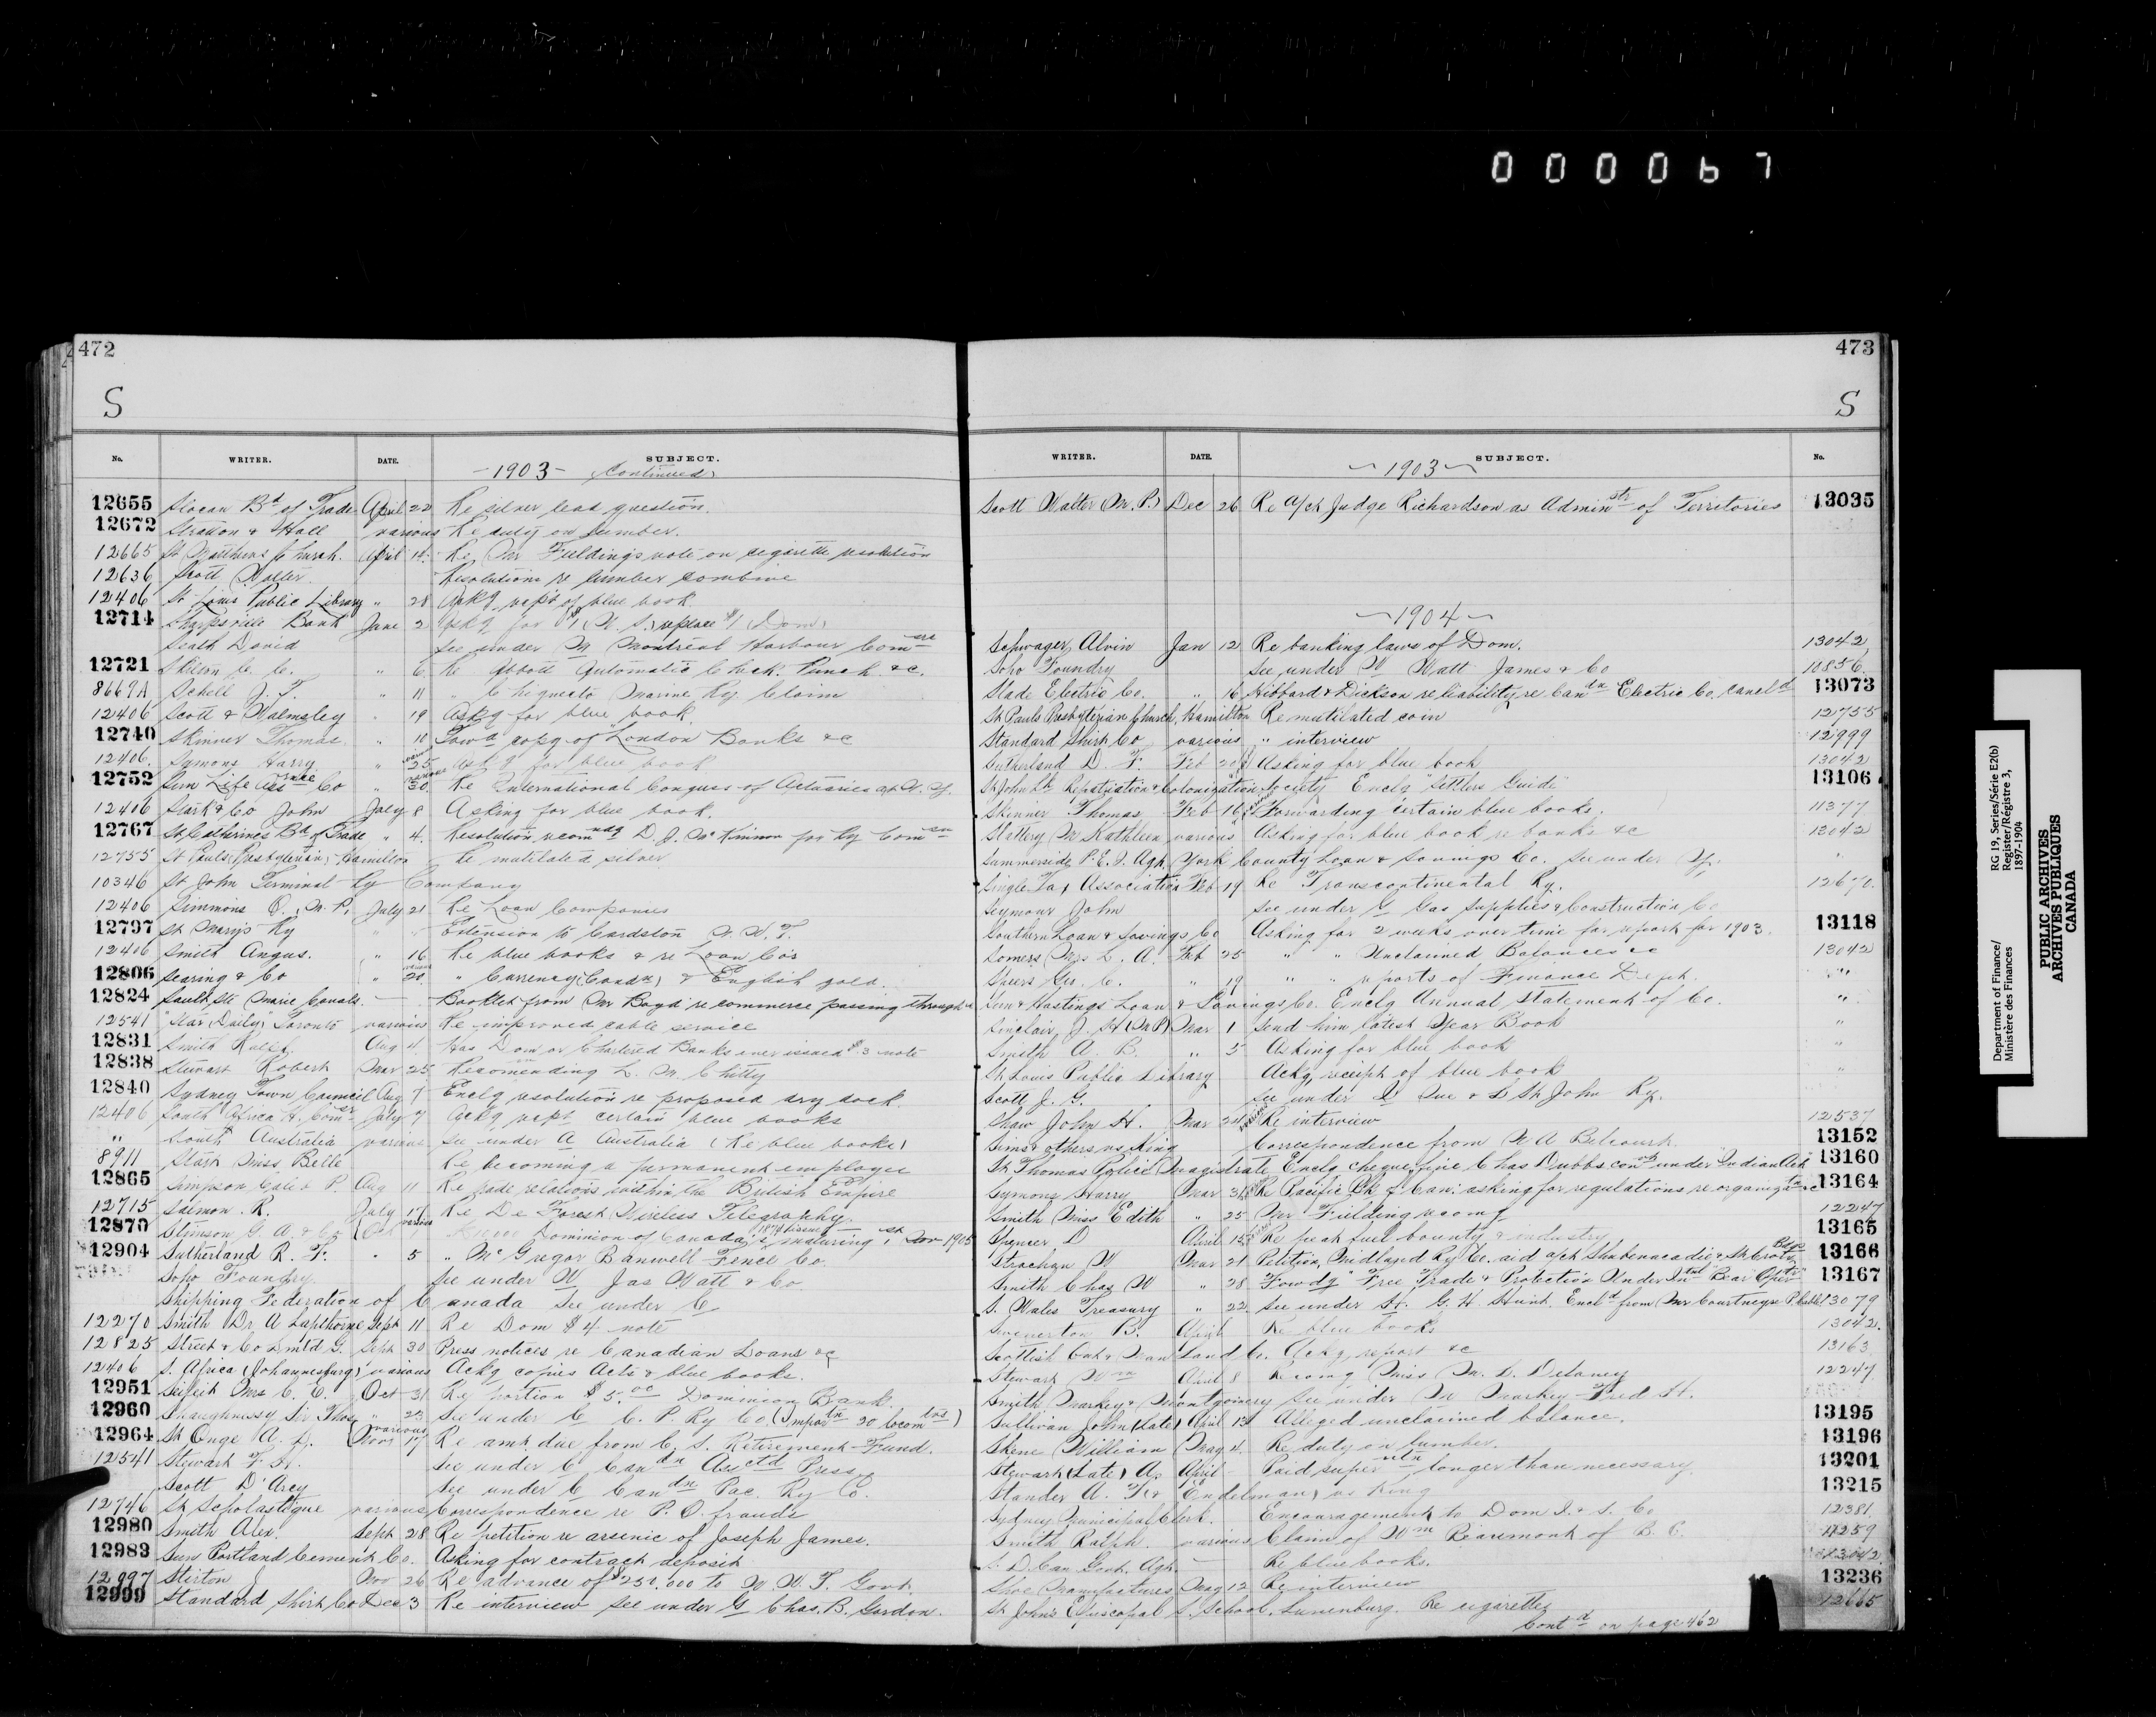 0 0 0 0 6 7
472
S
No. WRITER. DATE. SUBJECT.
-1903- Continued
12655 Slocan Bd of Trade April 22 Re silver lead question
12672 Stratton & Hall various Re duty on lumber.
12665 St Matthews Church. April 14 Re Mr Fieldings vote on cigarette resolution
12636 Scott Walter. Resolutions re lumber combine
12406 St Louis Public Library " 28 Ackg rept of blue book
12714 Sharpsville Bank June 2 for $1 (U. S.) replace $1 (Dom)
Seath David See under M Montreal Harbour Comers
12721 C. C. " 6 Re Abbott Automatic Check Punch &c.
8669A Schell J. T. " 11 " Chignecto Marine Ry. Claim
12406 Scott & Walmsley " 19 Askg for blue book
12740 Skinner Thomas " 18 Fowd copy of London Banks &c
12406 Symons Harry " 25 Askg for blue book
12752 Sun Life Assnce Co " 30 Re International Congress of Actuaries at N. Y.
12406 Stark & Co John July 8 Asking for blue book.
12767 St Catherines Bd of Trade " 4. Resolution recomndg D. J. McKinnon for Ry Comsn
12755 St Pauls (Presbyterian) Hamilton Re mutilated silver
10346 St John Terminal Ry Company
12406 Simmons M. P. July 21 Re Loan Companies
12797 St Marys Ry " " Extension to Cardston N. W. T.
12406 Smith Angus. " 16 Re blue books & re Loan Co's
12806 Searing & Co " 20 " Currency (Candn) & English gold.
12824 Sault Ste Marie Canals. — Booklet from Mr Boyd re commerce passing through
12541 "Star (Daily)" Toronto various Re improved cable service
12831 Smith Ralph Aug 4 Has Dom or Chartered Banks ever issued $3 note
12838 Stewart Robert Mar 25 Recomending L. M. Chitty
12840 Sydney Town Council Aug 7 Enclg resolution re proposed dry dock
12406 South Africa H. Comer July 7 Ackg rept certain blue books
" South Australia various See under A Australia (Re blue books)
8911 Stark Miss Belle Re becoming a permanent employee
12865 Simpson Caleb P. Aug 11 Re trade relations within the British Empire
12715 Salmon R. July 17 Re De Forest Wireless Telegraphy
12870 Stimson G. A. & Co Oct 1 Dominion of Canada's 1874 issue maturing 1st Nov 1905
12904 Sutherland R. F. " 5 " McGregor Banwell Fence Co.
Soho Foundry. See under W Jas Watt & Co
Shipping Federation of Canada See under C
12270 Smith Dr A Lapthorne Sept 11 Re Dom $4 note
12825 Street & Co Lmtd G. Sept 30 Press notices re Canadian Loans &c
12406 S. Africa (Johannesburg) various Ackg copies Acts & blue books.
12951 Seifeit Mrs C. E. Oct 31 Re portion $5.00 Dominion Bank.
12960 Shaughnessy Sir Thos " 23 See under C C. P. Ry Co. (Importn 20 locomtvs)
12964 St Onge A. L. various Nov 17 Re amt due from C. S. Retirement Fund.
12541 Stewart F. H. See under C Candn Asctd Press
Scott D'Arcy See under C Candn Pac. Ry Co.
12746 St Scholastique various Correspondence re P. O. frauds
12980 Smith Alex. Sept 28 Re petition re arsenic of Joseph James.
12983 Sun Portland Cement Co. Asking for contract deposit
12997 Stirton J Nov 26 Re advance of $250,000 to N. W. T. Govt.
12999 Standard Shirt Co Dec 3 Re interview See under G Chas. B. Gordon.
473
S
WRITER. DATE. SUBJECT. No.
~1903~
Scott Walter (M. P.) Dec 26 Re a/ct Judge Richardson as Adminstr of Territories 13035
~1904~
Schwager Alvin Jan 12 Re banking laws of Dom. 13042
Soho Foundry See under W Watt James & Co 10856
Slade Electric Co. " 16 Hibbard & Dickson re liability re Candn Electric Co. cancld 13073
St Pauls Presbyterian Church, Hamilton Re mutilated coin 12755
Standard Shirt Co various " interview 12999
Sutherland D. F. Feb 20 Asking for blue book 13042
St John Ltd Repatriation & Colonization Society Enclg "Settlers Guide" 13106
Skinner Thomas Feb 16 Forwarding certain blue books. 11377
Slattery M Kathleen various Asking for blue book re banks &c 13042
Summerside P. E. I. Agt. York County Loan & Savings Co. See under Y. "
Single Tax Association Feb 19 Re Transcontinental Ry. 12670
Seymour John See under G Gas Supplies & Construction Co
Southern Loan & Savings Co Asking for 2 weeks over time for report for 1903. 13118
Somers Mrs L. A. Feb 25 " " Unclaimed Balances &c 13042
Speers Geo. C. " 19 " " reports of Finance Dept. "
& Hastings Loan & Savings Co. Enclg Annual Statement of Co. "
Sinclair J. H. (M.P.) Mar 1 Send him latest Year Book "
Smith A. B. " 5 Asking for blue book "
St Louis Public Library Ackg receipt of blue book "
Scott J. G. See under Q Que & L St John Ry.
Shaw John H. Mar 24 Re interview 12537
Sims & others vs King Correspondence from N A Belcourt. 13152
St Thomas Police Magistrate Enclg cheque fine Chas Dubbs convtd under Indian Act 13160
Symons Harry Mar 31 Re Pacific Bk of Can: asking for regulations re organiztn &c 13164
Smith Miss Edith " 25 Mr Fielding recomg 12247
Spencer D April 15 Re peat fuel bounty & industry 13165
Strachan W Mar 21 Petition Midland Ry Co. aid a/ct Shubenacadie & St Croix Bdge 13166
Smith Chas W " 28 Fowdg "Free Trade & Protection Under Intnl "Bear" Opertr 13167
S. Wales Treasury " 22 See under H. G. H. Hunt. Encld from Mr Courtney re P. Cable 13079
Swinerton B. April Re blue books 13042.
Scottish Ont & Man Land Co. Ackg report &c 13163
Stewart Wm April 8 Recomg Miss M. D. Delaney 12247
Smith Markey & Montgomery See under M Markey Fred H.
Sullivan John (Late) April 13 Alleged unclaimed balance. 13195
Skene William May 4. Re duty on lumber. 13196
Stewart (Late) A. April — Paid superantn longer than necessary. 13201
Stander A. F. & Endelman vs King 13215
Sydney Municipal Clerk. Encouragement to Dom I. & S. Co 12381
Smith Ralph. various Claim of Wm Bearemont of B. C. 11259
S. D Can Govt. Agt. — Re blue books. 13042.
Shoe Manufactures May 12 Re interview 13236
St John's Episcopal S. School, Lunenburg. Re cigarettes 12665
Contd on page 462
Department of Finance/ Ministère des Finances
RG 19, Series/Série E2(b) Register/Régistre 3, 1897-1904
PUBLIC ARCHIVES
ARCHIVES PUBLIQUES
CANADA